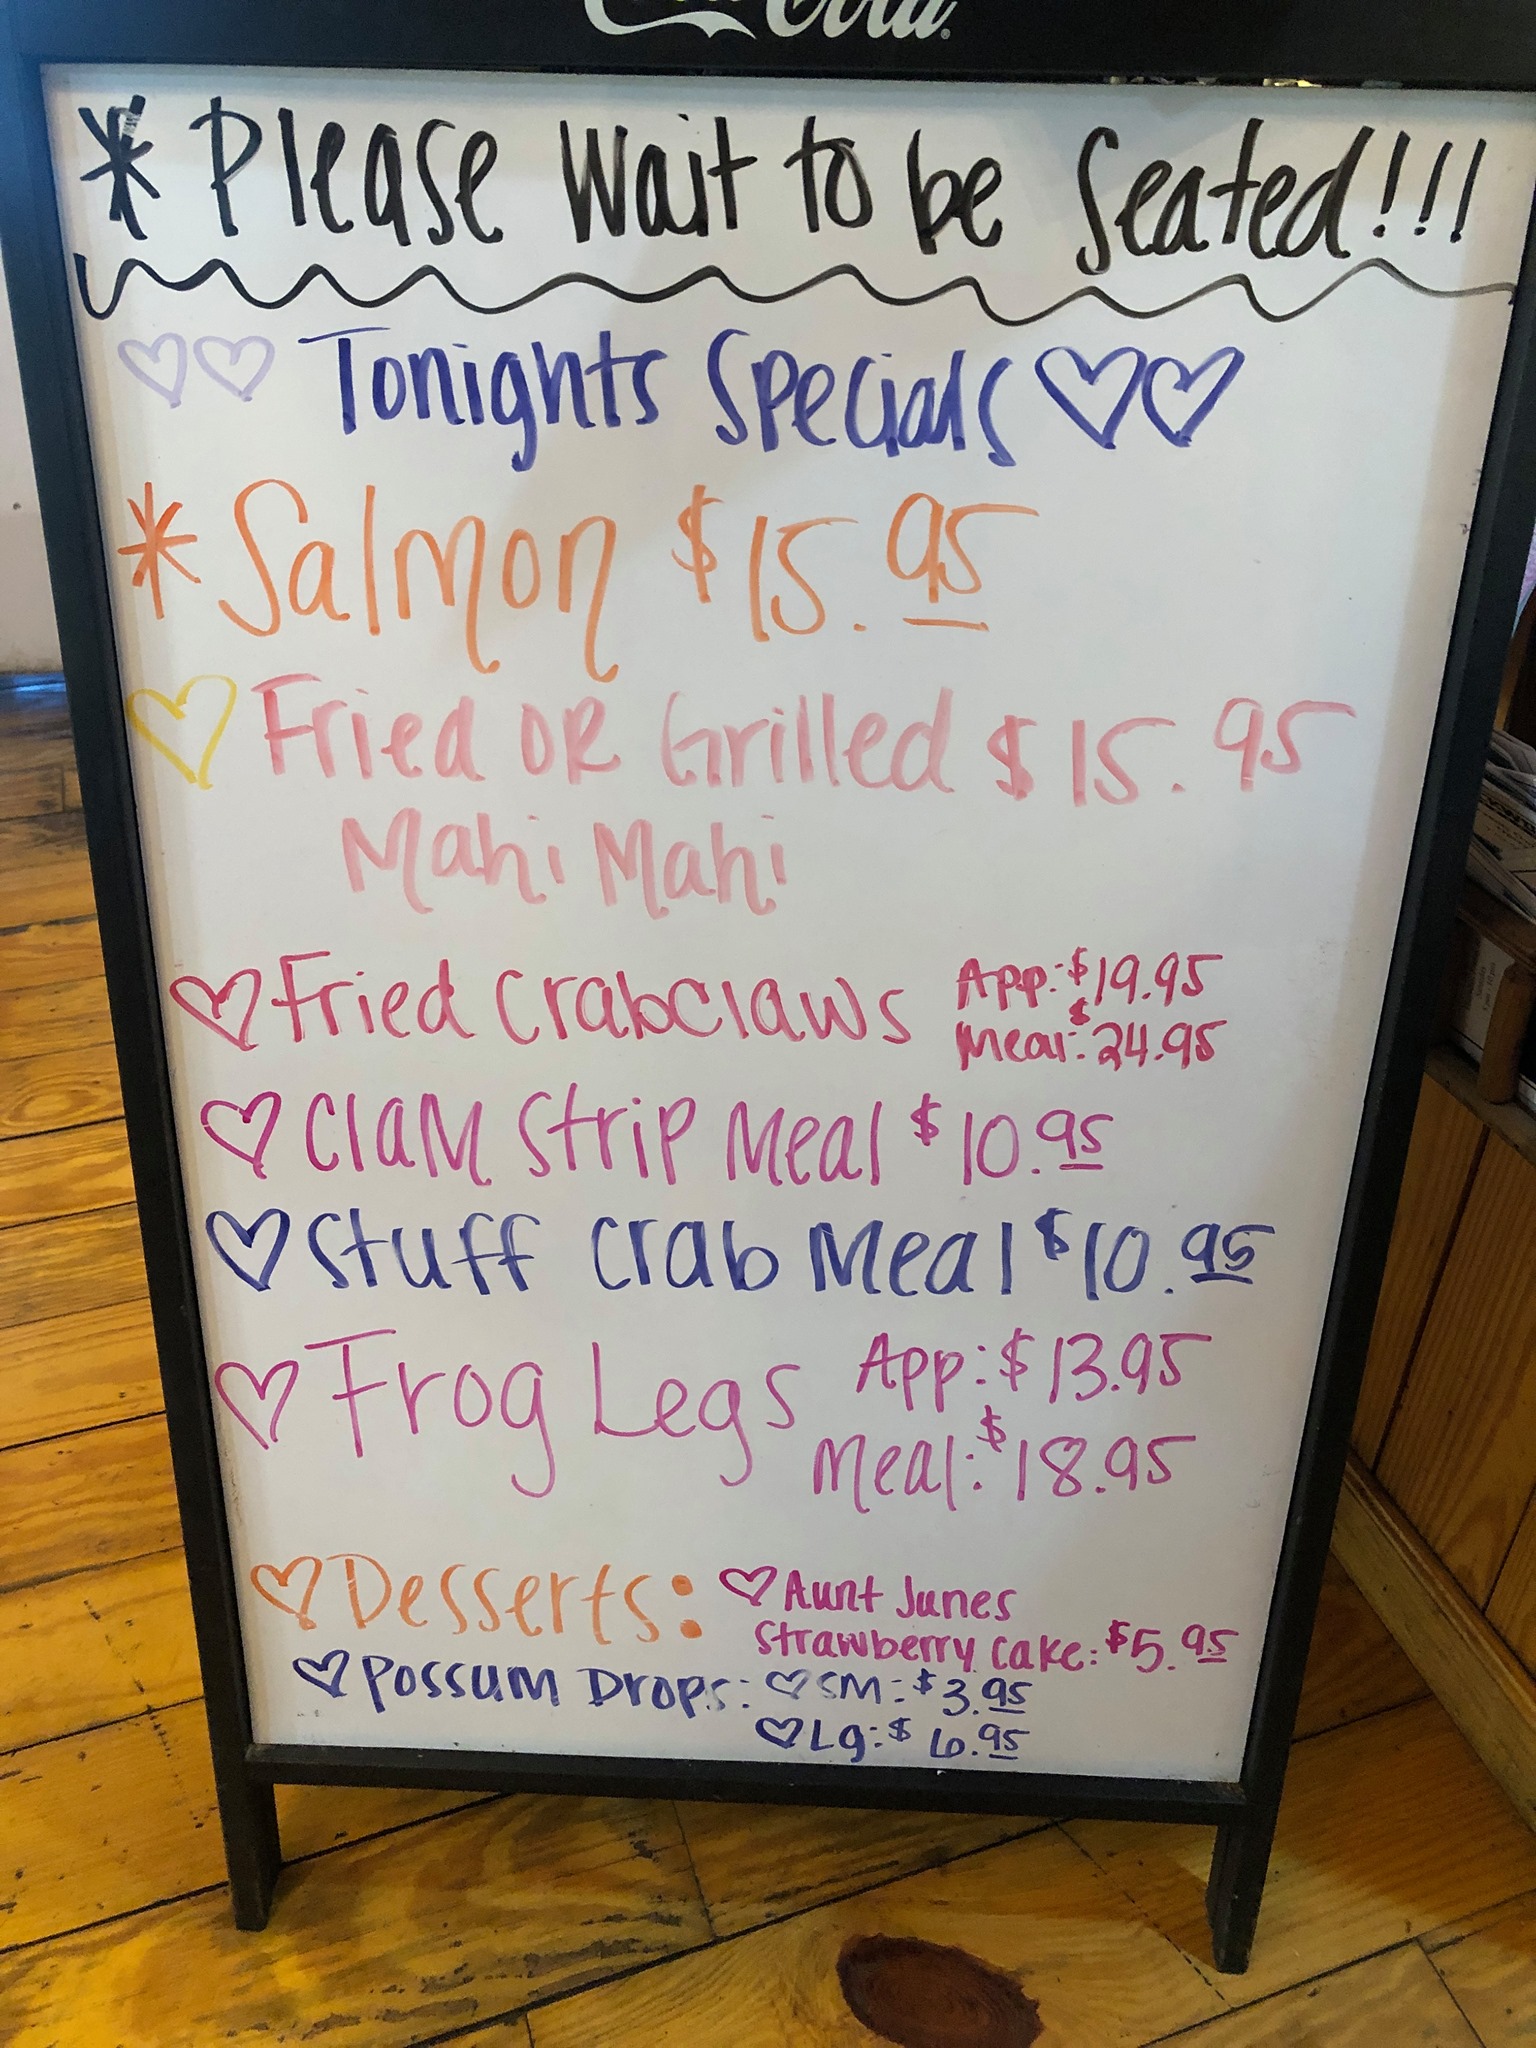 Cola
* Please Wait to be Seated!!!
Tonights Specials
* Salmon $15.95
Fried OR Grilled $15.95
Mahi Mahi
Fried Crabclaws App: $19.95
Meal: $24.95
Clam Strip Meal $10.95
Stuff Crab Meal $10.95
Frog Legs App: $13.95
Meal: $18.95
Desserts: Aunt Junes
Strawberry Cake: $5.95
Possum Drops: SM: $3.95
Lg: $6.95